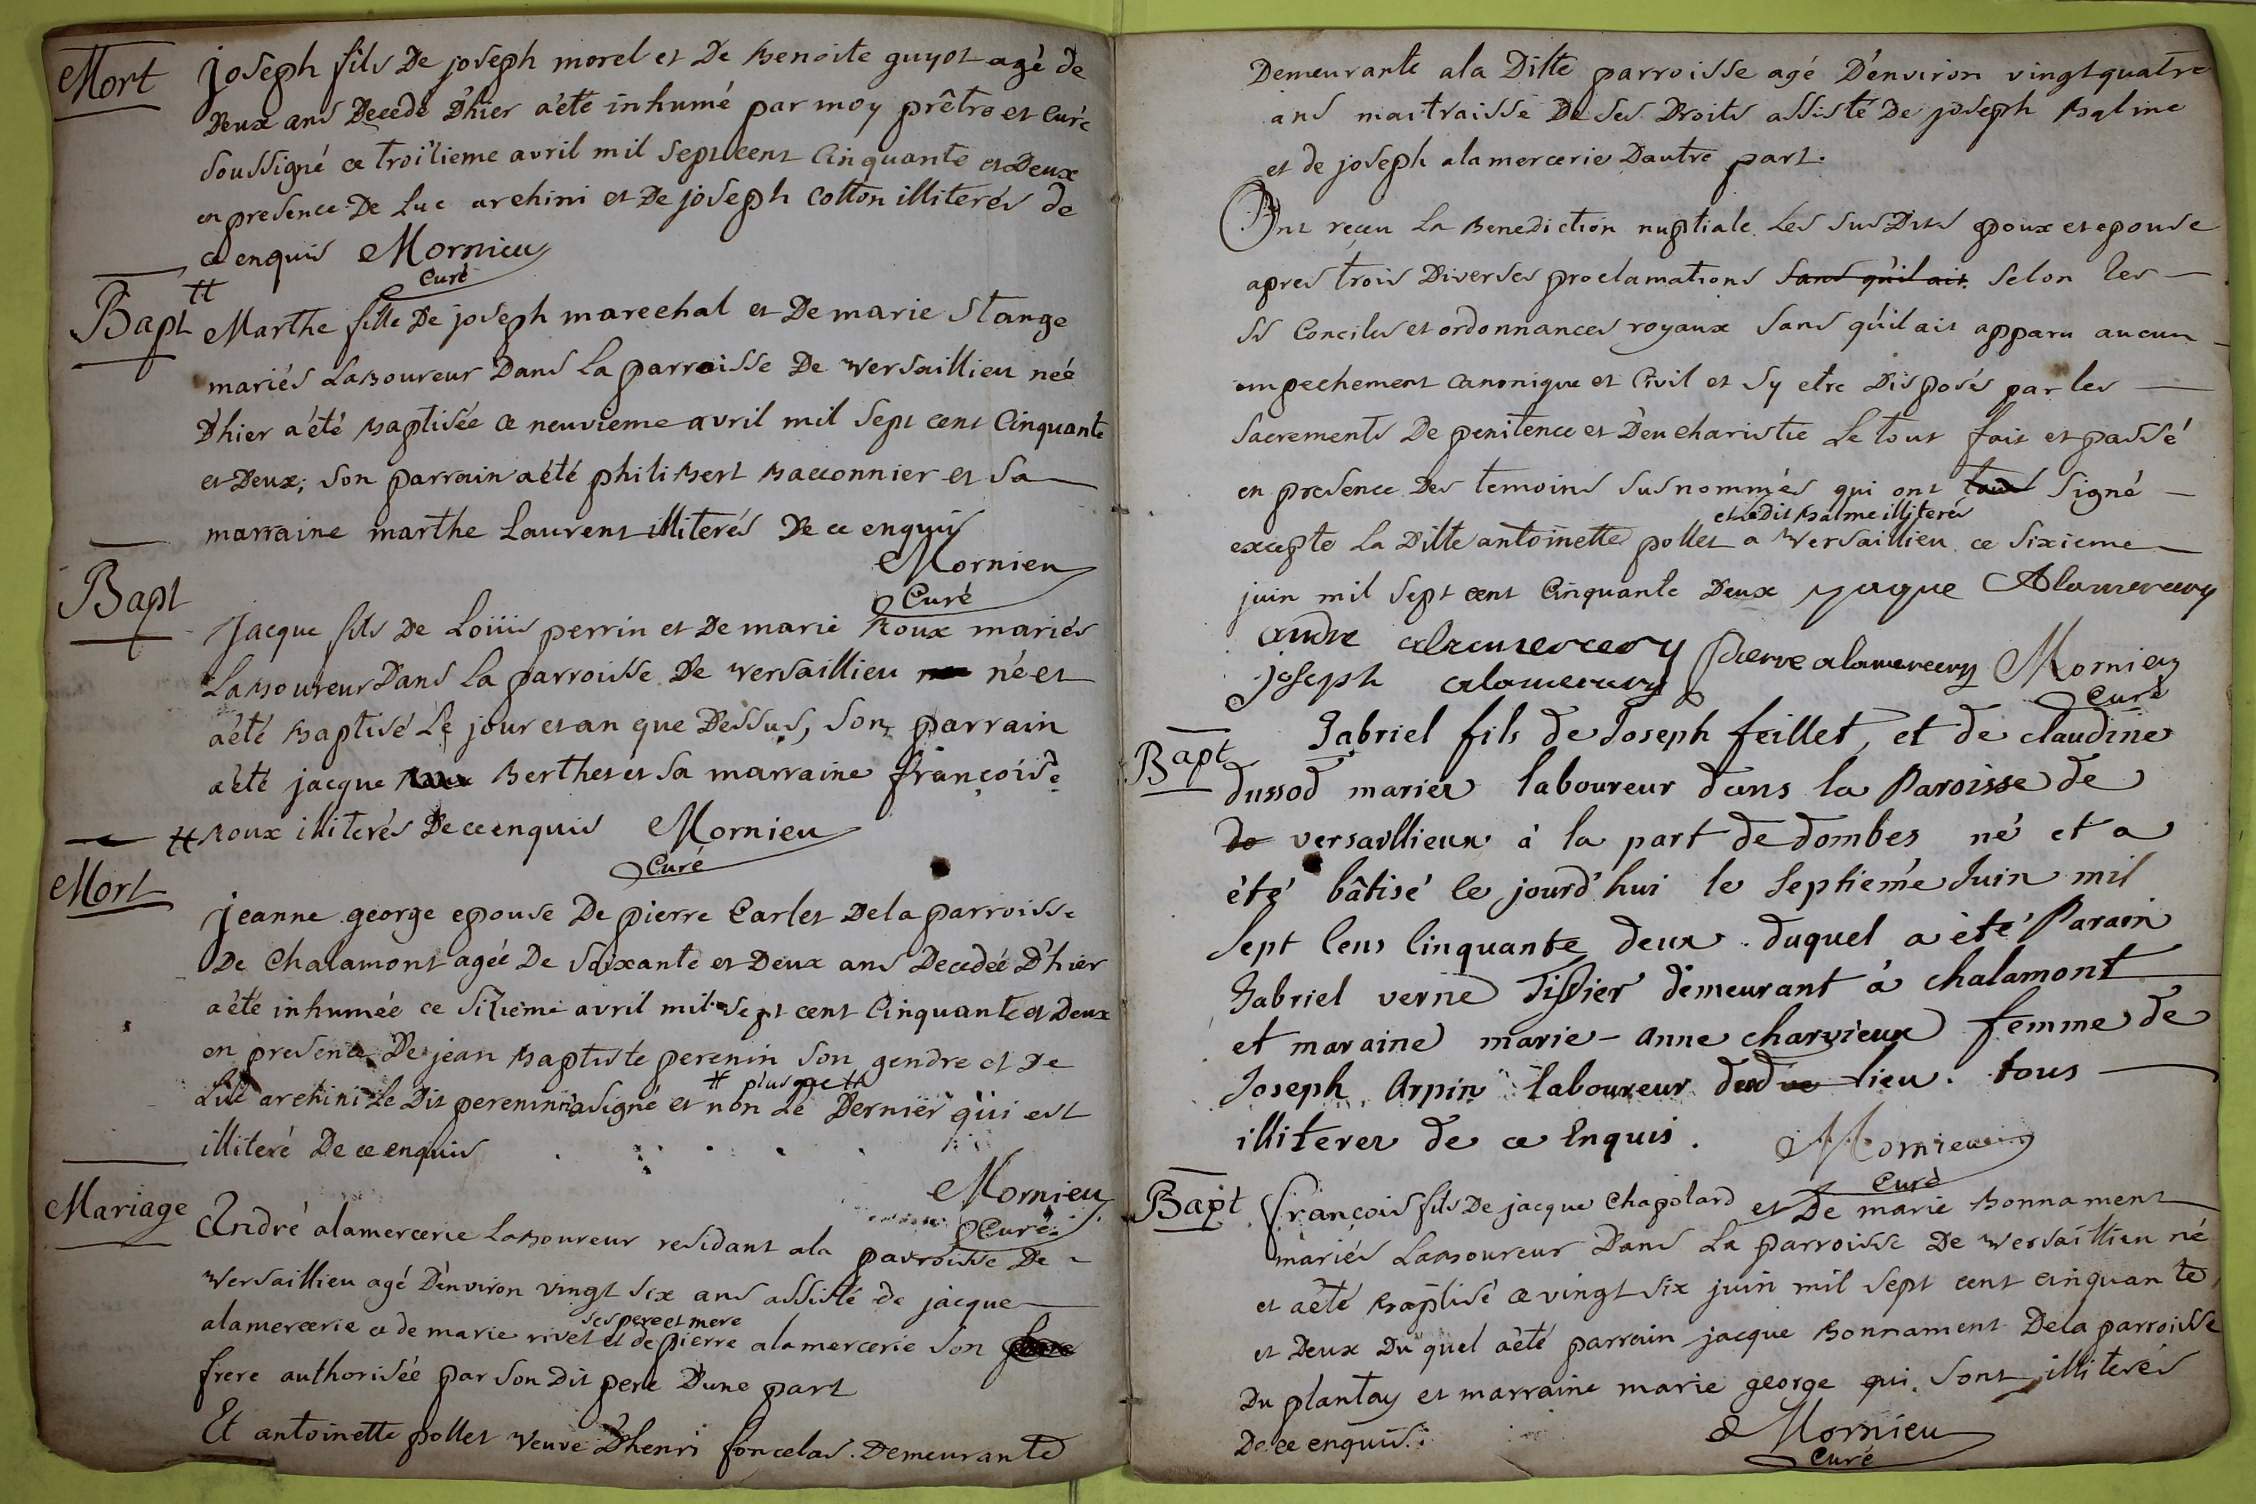 Mort
joseph fils De joseph morel et De Benoite guyot agé de
Deux ans Decedé D'hier a été inhumé par moy prêtre et Curé
soussigné ce troisieme avril mil sept cent Cinquante et Deux
en presence De Luc archini et De joseph Cotton illiterés de
ce enquis Mornieu
Curé
Bapt
Marthe fille De joseph marechal et De marie Stange
mariés Laboureur Dans la parroisse De versaillieu neé
D'hier a été Baptisée ce neuvieme avril mil sept cent Cinquante
et Deux; son parrain a été philibert Bacconnier et sa
marraine marthe Laurent illiterés De ce enquis
Mornieu
Curé
Bapt
Jacque fils De Loüis perrin et De marie Roux mariés
Laboureur Dans la parroisse De versaillieu né et
a été Baptisé Le jour et an que Dessus, son parrain
a été jacque Berthet et sa marraine françoise
Roux illiterés De ce enquis Mornieu
Curé
Mort
jeanne george epouse De pierre Carlet De la parroisse
De Chalamont agée De soixante et Deux ans Decedeé D'hier
a été inhumée ce sizieme avril mil sept cent Cinquante et Deux
en presence De jean Baptiste perenin son gendre et De
plus que
Luc archini Le Dit perenin a signé et non Le Dernier qui est
illiteré De ce enquis
Mornieu
Curé
Mariage
André alamercerie Laboureur residant ala parroisse De
versaillieu agé D'environ vingt six ans assisté de jacque
ses pere et mere
alamercerie et de marie rivet et de pierre alamercerie son
frere authorisée par son Dit pere D'une part
Et antoinette pollet veuve D'henri foncelas Demeurante
Demeurante ala Ditte parroisse agé D'environ vingt quatre
ans maitraisse De ses Droits assisté De joseph Balme
et de joseph alamercerie Dautre part.
Ont reçeu la Benediction nuptiale Les susDits epoux et epouse
apres trois Diverses proclamations sans qu'il ait selon les
ss Conciles et ordonnances royaux sans qu'il ait apparu aucun
empechement canonique et Civil et sy etre Disposés par les
sacrements De penitence et D'eucharistie Le tout fait et passé
en presence Des temoins susnommés qui ont tous signé
et le Dit Balme illiterés
excepte la Ditte antoinette pollet a versaillieu ce sixieme
juin mil sept cent Cinquante Deux jaque Alamercery
andre alamercery pierre alamercery Mornieu
joseph alamercery Curé
Bapt
Gabriel fils de Joseph feillet, et de claudine
dussod marier laboureur dans la Paroisse de
de versaillieux à la part de dombes né et a
été bâtisé le jourd'hui le septiéme Juin mil
sept Cens Cinquante deux. duquel a été Parain
Gabriel verne Tissier demeurant à chalamont
et maraine marie-anne charvieux femme de
Joseph Arpin laboureur dud lieu. tous
illiterer de ce Enquis. Mornieu
Curé
Bapt
François fils De jacque Chapolard et De marie Bonnament
mariés Laboureur Dans La parroisse De versaillieu né
et a été Baptisé ce vingt six juin mil sept cent cinquante
et Deux Du quel a été parrain jacque Bonnament De la parroisse
Du plantay et marraine marie george qui sont illiterés
De ce enquis. Mornieu
Curé